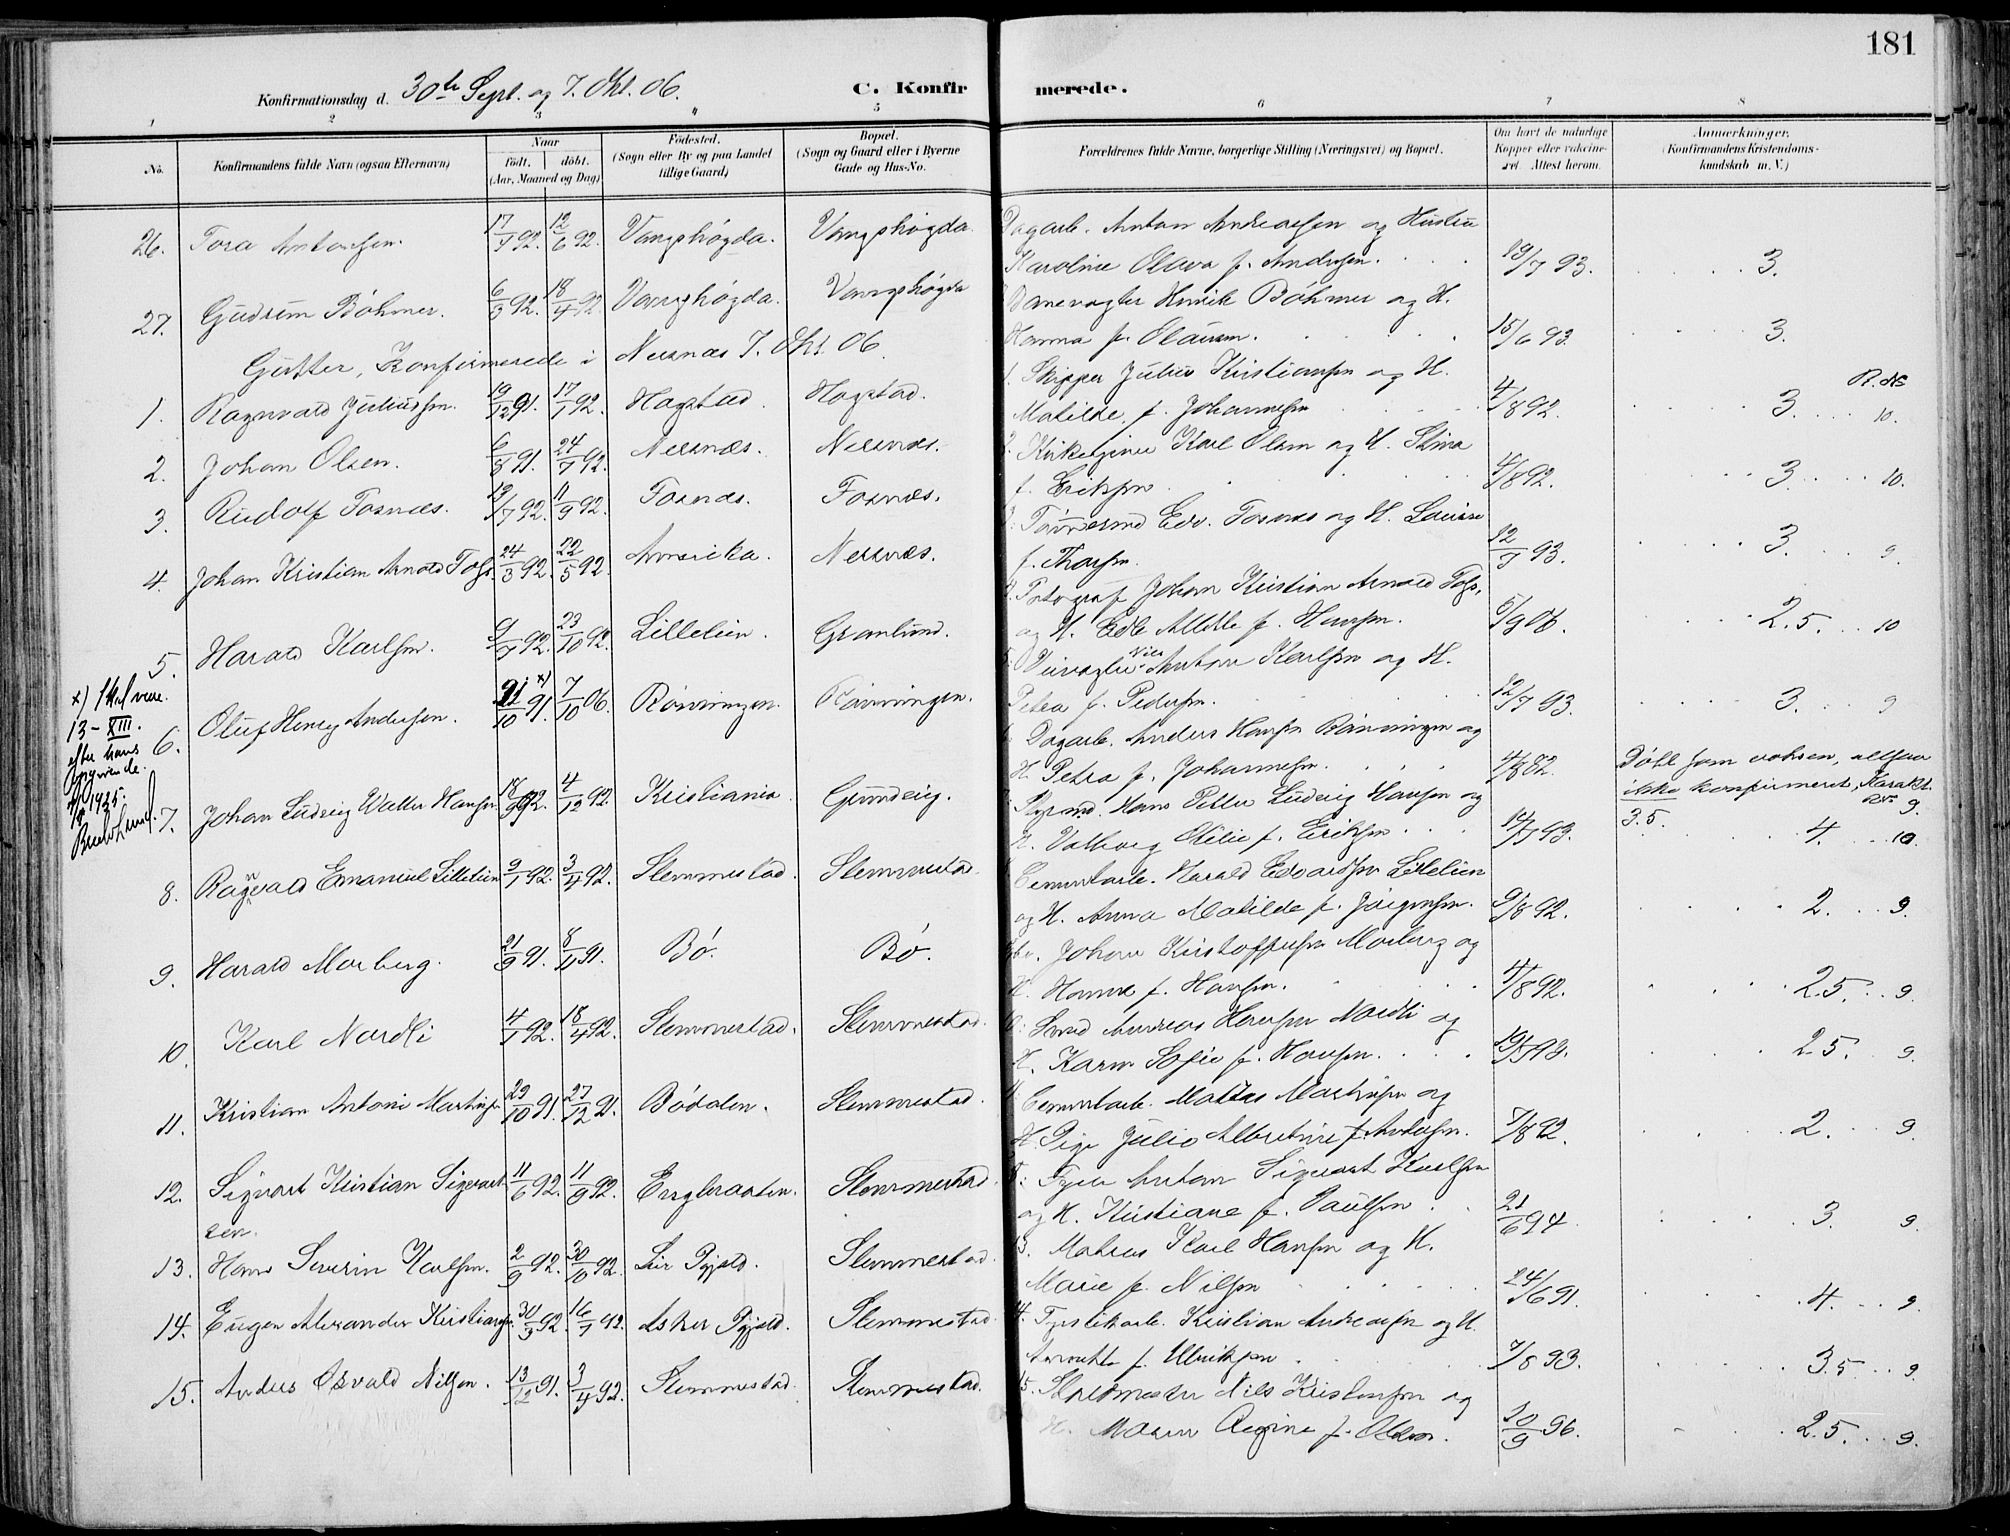 181
Konfirmationsdag d. 30te Sept. og 7. Okt. 06.
C. Konfirmerede.
1 2 3 4 5 6 7 8
No.
Konfirmandens fulde Navn (ogsaa Efternavn)
Naar
født. døbt.
(Aar, Maaned og Dag)
Fødested.
(Sogn eller By og paa Landet
tillige Gaard)
Bopæl.
(Sogn og Gaard eller i Byerne
Gade og Hus-No.
Forældrenes fulde Navne, borgerlige Stilling (Næringsvei) og Bopæl.
Om havt de naturlige
Kopper eller vaccine-
ret. Attest herom.
Anmærkninger.
(Konfirmandens Kristendoms-
kundskab m. V.)
26. Tora Antonsen. 17/4 92. 12/6 92. Vangshøgda. Vangshøgda. Dagarb. Anton Andreassen og Hustru
Karoline Olava f. Andersen. 19/7 93. 3.
27. Gudrun Bøhmer. 6/3 92. 18/4 92. Vangshøgda. Vangshøgda Banevogter Henrik Bøhmer og H.
Hanna f. Olausen. 15/6 93. 3.
Gutter, Konfirmerede i Nersnæs 7. Okt. 06.
1. Ragnvald Juliussen. 19/12 91. 17/1 92. Hogstad. Hogstad. 1. Skipper Julius Kristiansen og H.
Matilde f. Johannesen 4/8 92. 3. 10.
2. Johan Olsen. 6/8 91. 24/4 92. Nersnæs. Nersnæs. 2. Kirketjener Karl Olsen og H. Stina
f. Eriksen 4/8 92. 3 10.
3. Rudolf Tosnæs. 19/7 92. 11/9 92. Tosnæs. Tosnæs. 3. Tømmermd Edv. Tosnæs og H. Lovise
f. Thorsen. 12/7 93. 3. 9.
4. Johan Kristian Arnold Foss. 24/3 92. 22/5 92. Amerika. Nersnæs. 4. Fotograf Johan Kristian Arnold Foss,
og H. Edle Mille f. Hansen. 5/9 06. 2.5. 10
5. Harald Karlsen. 9/7 92. 23/10 92. Lillelien. Granlund. 5. Anton Karlsen og H.
Petra f. Pedersen. 12/7 93. 3. 9
6. Oluf Henry Andersen. 21/10 91. x) 7/10 06. Rønningen. Rønningen. 6. Dagarb. Anders Hansen Rønningen og
H. Petra f. Johannesen. 4/8 82. Døbt som voksen, altsaa
ikke konfirmeret, Karakt.
3.5. 9.
x) Skal være
13-XIII.
efter hans
opgivende.
1925.
7. Johan Ludvig Walter Hansen 18/9 92. 4/12 92. Kristiania Grundvig. 7. Styrmd. Hans Petter Ludvig Hansen og
H. Valborg Otilie f. Eriksen. 14/7 93. 4. 10
8. Ragnvald Emanuel Lillelien 9/1 92. 3/4 92. Slemmestad. Slemmestad. Cementarb. Harald Edvardsen Lillelien
og H. Anna Matilde f. Jørgensen. 9/8 92. 2. 9.
9. Harald Morberg. 21/9 91. 8/11 91. Bø. Bø. Johan Kristoffersen Morberg og
H. Hanna f. Hansen. 4/8 92. 2.5. 9.
10. Karl Nordli 4/1 92. 18/4 92. Slemmestad. Slemmestad. Smed Andreas Hansen Nordli og
H. Karen Sofie f. Hansen. 19/7 93. 2.5. 9.
11. Kristian Antoni Martinsen 29/10 91. 27/12 91. Bødalen. Slemmestad. Cementarb. Mathis Martinsen og
H. Julie Albertine f. Andersen. 7/8 92. 2. 9.
12. Sigvart Kristian Sigvart-
sen. 11/6 92. 11/9 92. Engleraaten. Slemmestad. Anton Sigvart Karlsen
og H. Kristiane f. Paulsen 21/6 94. 3. 9.
13. Hans Severin Karlsen. 2/9 92. 30/10 92. Slemmestad. 13. Matros Karl Hansen og H.
Marie f. Nilsen 24/6 91. 4. 9.
14. Eugen Alexander Kristiansen. 30/3 92. 16/7 92. Asker Pgjeld. Slemmestad. 14. Kristian Andreassen og H.
f. Ulriksen 7/8 93. 3.5 9.
15. Anders Osvald Nilsen. 13/12 91. 3/4 92. Slemmestad. Slemmestad. 15. Nils Kristensen og
H. Maren Regine f. Olsen. 20/9 96. 2.5. 9.